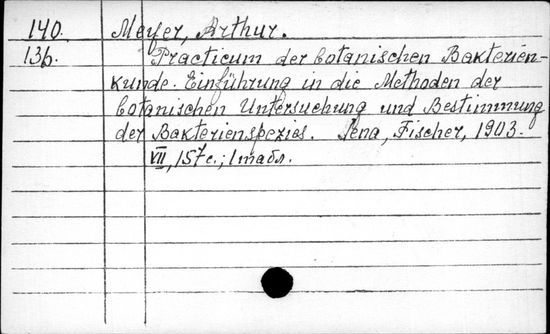 140. Meyer, Arthur.
136. Practicum der botanischen Bakterien-
kunde. Einführung in die Methoden der
botanischen Untersuchung und Bestimmung
der Bakterienspezies. Jena, Fischer, 1903.
VII, 157c.; 1табл.